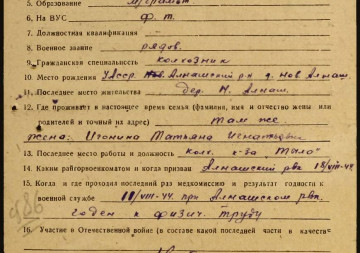 5. Образование
6. На ВУС ф. т.
7. Должностная квалификация
8. Военное звание рядов.
9. Гражданская специальность колхозник
10. Место рождения УАсср Алнашский р-н д. Нов. Алнаш.
11. Последнее место жительства дер. Н. Алнаш.
12. Где проживает в настоящее время семья (фамилия, имя и отчество жены или
родителей и точный их адрес) там же
жена: Игонина Татьяна Игнатьевн
13. Последнее место работы и должность колх. к-за
14. Каким райгорвоенкоматом и когда призван Алнашский рвк
15. Когда и где проходил последний раз медкомиссию и результат годности к
военной службе 10/VIII-44. при Алнашском рвк.
годен к физич. труду
16. Участие в Отечественной войне (в составе какой последней части и качест-